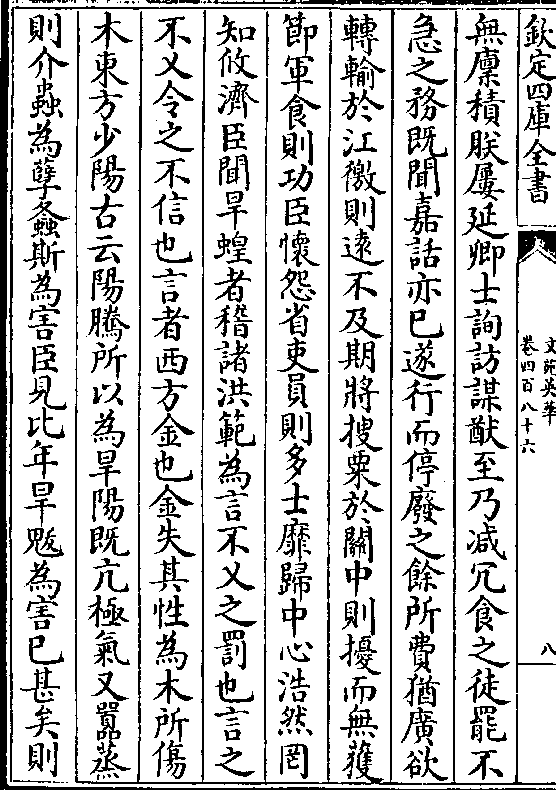 欽定四庫全書
文苑英華
卷四百八十六
八
無廩積朕屢延卿士詢訪謀猷至乃减冗食之徒罷不
急之務既聞嘉話亦已遂行而停廢之餘所費猶廣欲
轉輸於江徼則逺不及期將搜粟於關中則擾而無獲
節軍食則功臣懷怨省吏員則多士靡歸中心浩然罔
知攸濟臣聞旱蝗者稽諸洪範為言不乂之罰也言之
不乂令之不信也言者西方金也金失其性為木所傷
木東方少陽古云陽騰所以為旱陽既亢極氣又嚣蒸
則介蟲為孽螽斯為害臣見比年旱魃為害已甚矣則